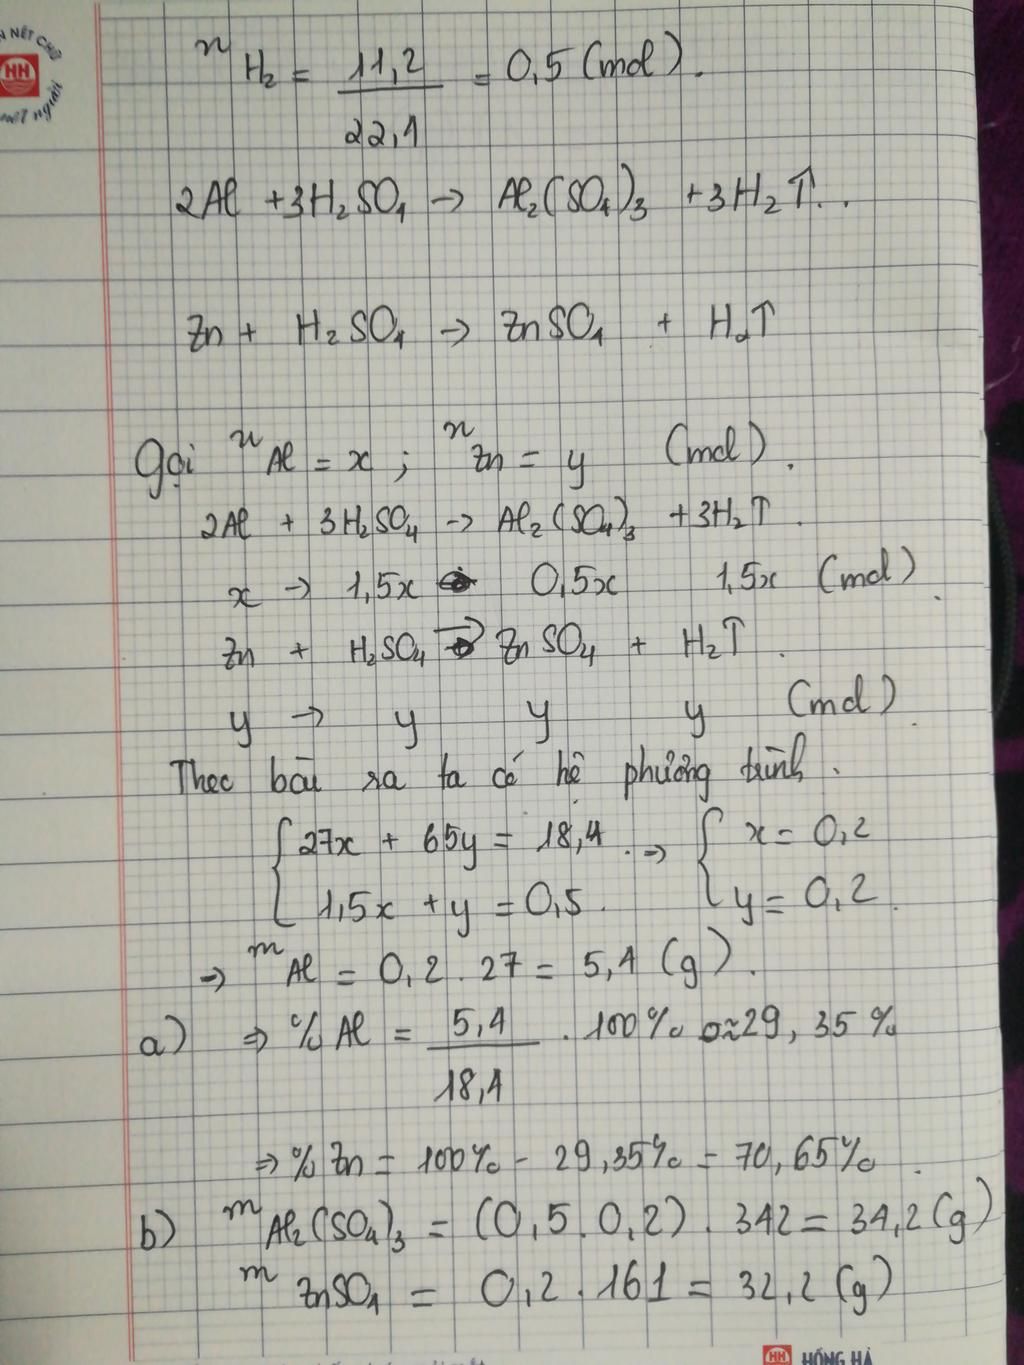 N NẾT CHỮ
HH
nết người
nH₂ = 11,2/22,4 = 0,5 (mol).
2Al + 3H₂SO₄ → Al₂(SO₄)₃ + 3H₂↑.
Zn + H₂SO₄ → ZnSO₄ + H₂↑
Gọi nAl = x ; nZn = y (mol).
2Al + 3H₂SO₄ → Al₂(SO₄)₃ + 3H₂↑.
x → 1,5x 0,5x 1,5x (mol).
Zn + H₂SO₄ → ZnSO₄ + H₂↑.
y → y y y (mol).
Theo bài ra ta có hệ phương trình.
{ 27x + 65y = 18,4 . → { x = 0,2
1,5x + y = 0,5. y = 0,2.
→ mAl = 0,2 . 27 = 5,4 (g).
a) ⇒ % Al = 5,4/18,4 . 100% ≈ 29,35 %
⇒ % Zn = 100% - 29,35% = 70,65% .
b) mAl₂(SO₄)₃ = (0,5 . 0,2) . 342 = 34,2 (g)
mZnSO₄ = 0,2 . 161 = 32,2 (g)
HH HỒNG HÀ